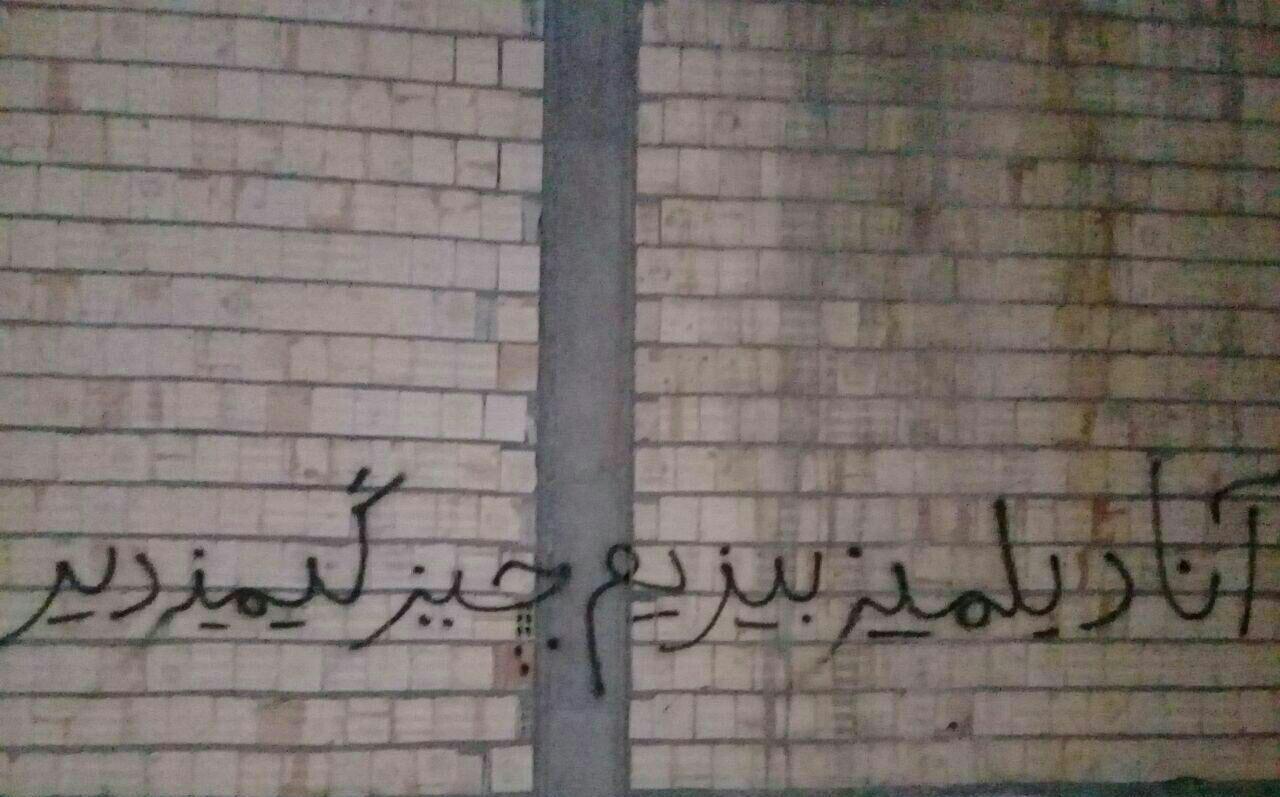 آنا دیلمیز بیزیم چیزگیمیزدیر